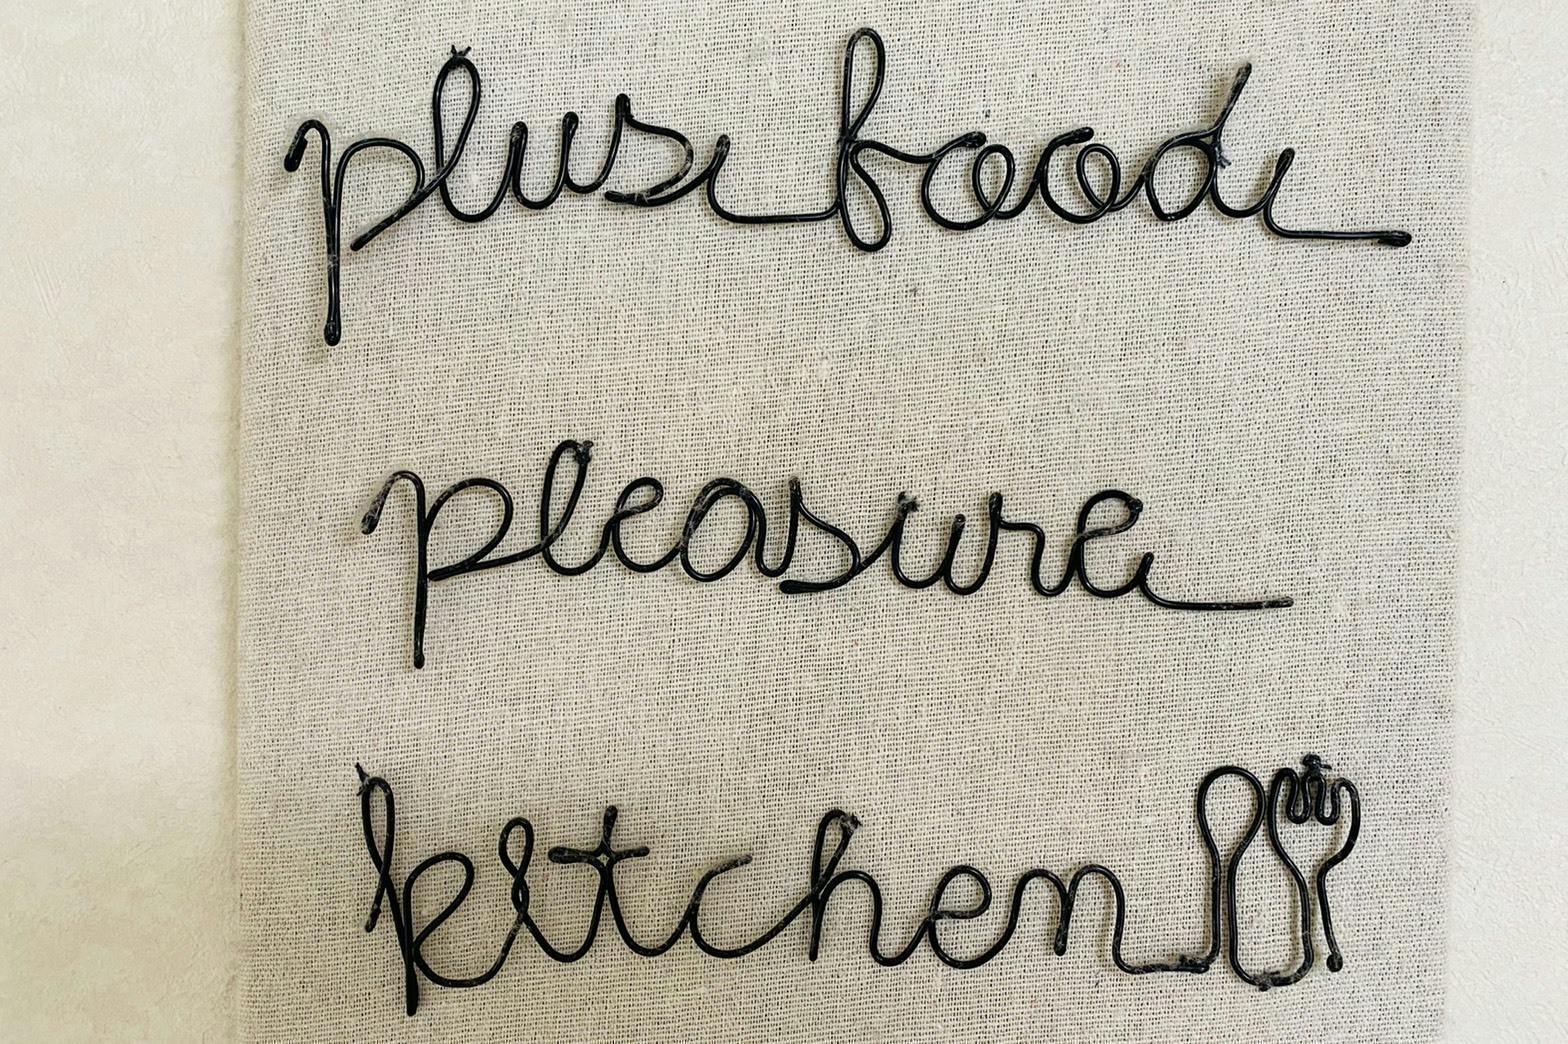 plus food
pleasure
kitchen